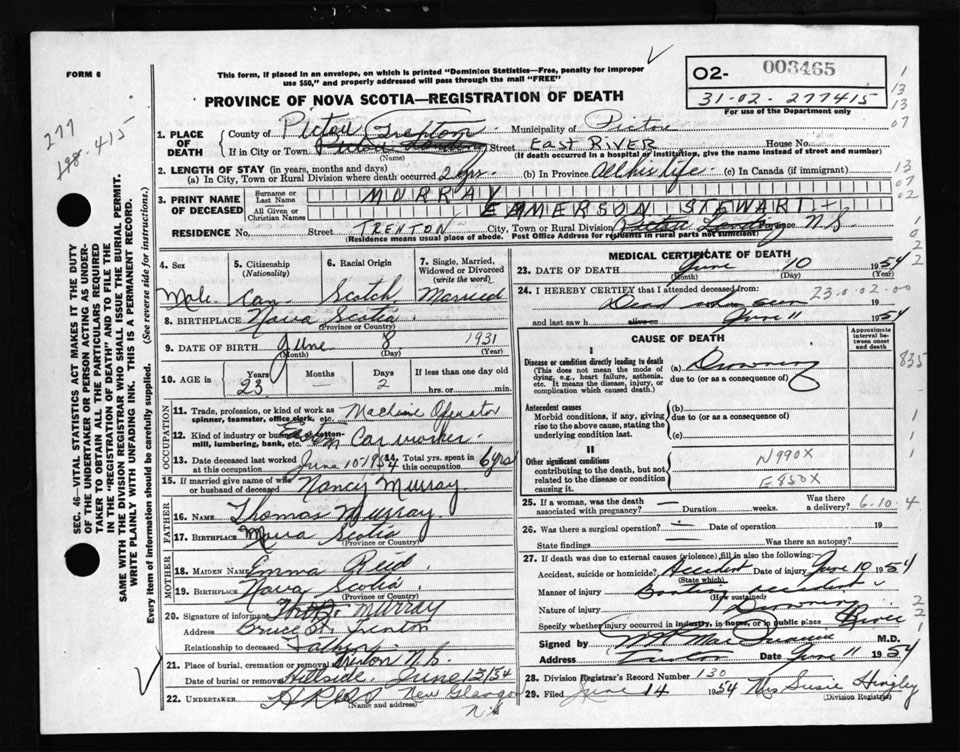 FORM 6
This form, if placed in an envelope, on which is printed "Dominion Statistics—Free, penalty for improper
use $50," and properly addressed will pass through the mail "FREE"
O2- 003465
31-02-277415
For use of the Department only
PROVINCE OF NOVA SCOTIA—REGISTRATION OF DEATH
277
198-415
1. PLACE OF DEATH
County of Pictou Trenton Municipality of Pictou
If in City or Town Pictou Landing Street EAST RIVER House No.
(Name) (If death occurred in a hospital or institution, give the name instead of street and number)
2. LENGTH OF STAY (in years, months and days)
(a) In City, Town or Rural Division where death occurred 2 yrs. (b) In Province All his life. (c) In Canada (if immigrant)
3. PRINT NAME OF DECEASED
Surname or Last Name MURRAY
All Given or Christian Names EMERSON STEWART
RESIDENCE No. Street TRENTON City, Town or Rural Division Pictou Landing Province N.S.
(Residence means usual place of abode. Post Office Address for residents in rural parts not sufficient)
4. Sex Male
5. Citizenship (Nationality) Can.
6. Racial Origin Scotch
7. Single, Married, Widowed or Divorced (write the word) Married
8. BIRTHPLACE Nova Scotia
(Province or Country)
9. DATE OF BIRTH June 8 1931
(Month) (Day) (Year)
10. AGE in Years 23 Months — Days 2 If less than one day old hrs. or min.
OCCUPATION
11. Trade, profession, or kind of work as spinner, teamster, office clerk, etc. Machine Operator
12. Kind of industry or business, cotton-mill, lumbering, bank, etc. Car worker.
13. Date deceased last worked at this occupation June 10-1954 14. Total yrs. spent in this occupation 6 yrs
15. If married give name of wife or husband of deceased Nancy Murray
FATHER
16. NAME Thomas Murray
17. BIRTHPLACE Nova Scotia
(Province or Country)
MOTHER
18. MAIDEN NAME Emma Reid
19. BIRTHPLACE Nova Scotia
(Province or Country)
20. Signature of informant Murray
Address Bruce St. Trenton
Relationship to deceased Father
21. Place of burial, cremation or removal Trenton N.S.
Date of burial or removal Hillside. June 13/54
22. UNDERTAKER New Glasgow
(Name and address) N.S
MEDICAL CERTIFICATE OF DEATH
23. DATE OF DEATH June 10 1954
(Month) (Day) (Year)
24. I HEREBY CERTIFY that I attended deceased from: 23-0-02-00
Dead when seen 19
and last saw h alive on June 11 1954
CAUSE OF DEATH
Approximate interval between onset and death
I
Disease or condition directly leading to death
(This does not mean the mode of dying, e.g., heart failure, asthenia, etc. It means the disease, injury, or complication which caused death.)
(a) Drowning
due to (or as a consequence of)
Antecedent causes
Morbid conditions, if any, giving rise to the above cause, stating the underlying condition last.
(b)
due to (or as a consequence of)
(c)
II
Other significant conditions
contributing to the death, but not related to the disease or condition causing it.
N990X
E850X
835
25. If a woman, was the death associated with pregnancy? — Duration weeks. Was there a delivery? 6-10-4
26. Was there a surgical operation? — Date of operation 19
State findings Was there an autopsy?
27. If death was due to external causes (violence) fill in also the following:
Accident, suicide or homicide? Accident Date of injury June 10 1954
(State which)
Manner of injury Boating accident
(How sustained)
Nature of injury Drowning
Specify whether injury occurred in industry, in home, or in public place River
Signed by M.D.
Address Trenton Date June 11 1954
28. Division Registrar's Record Number 130
29. Filed June 14 1954 Mrs Susie Hingley
(Division Registrar)
SEC. 46—VITAL STATISTICS ACT MAKES IT THE DUTY
OF THE UNDERTAKER OR PERSON ACTING AS UNDER-
TAKER TO OBTAIN ALL THE PARTICULARS REQUIRED
IN THE "REGISTRATION OF DEATH" AND TO FILE THE
SAME WITH THE DIVISION REGISTRAR WHO SHALL ISSUE THE BURIAL PERMIT.
WRITE PLAINLY WITH UNFADING INK. THIS IS A PERMANENT RECORD.
Every item of information should be carefully supplied. (See reverse side for instructions.)